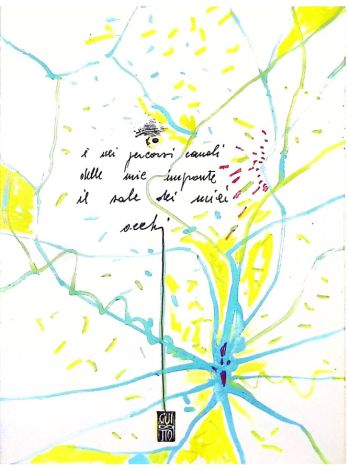 i nei percorsi canali
delle mie impronte
il sale dei miei
occhi